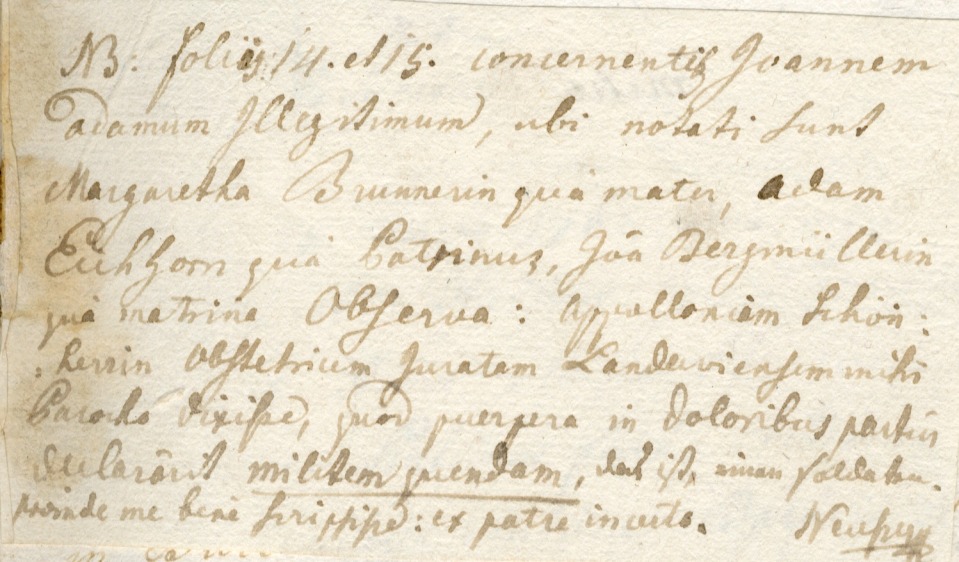 NB: foliis 14. et 15. concernentis Joannem
adamum Illegitimum, ubi notati sunt
Margaretha Brunnerin quà mater, adam
Eichhorn quà Patrinus, Joã Bergmüllerin
quà matrina Observa: Appolloniam Schön:
:herrin Obstetricem Juratam Landawiensem mihi
Parocho dixisse, quod puerpera in doloribus partûs
declarârit militem quendam, das ist, einen soldaten.
proinde me bene scripsisse: ex patre incerto.